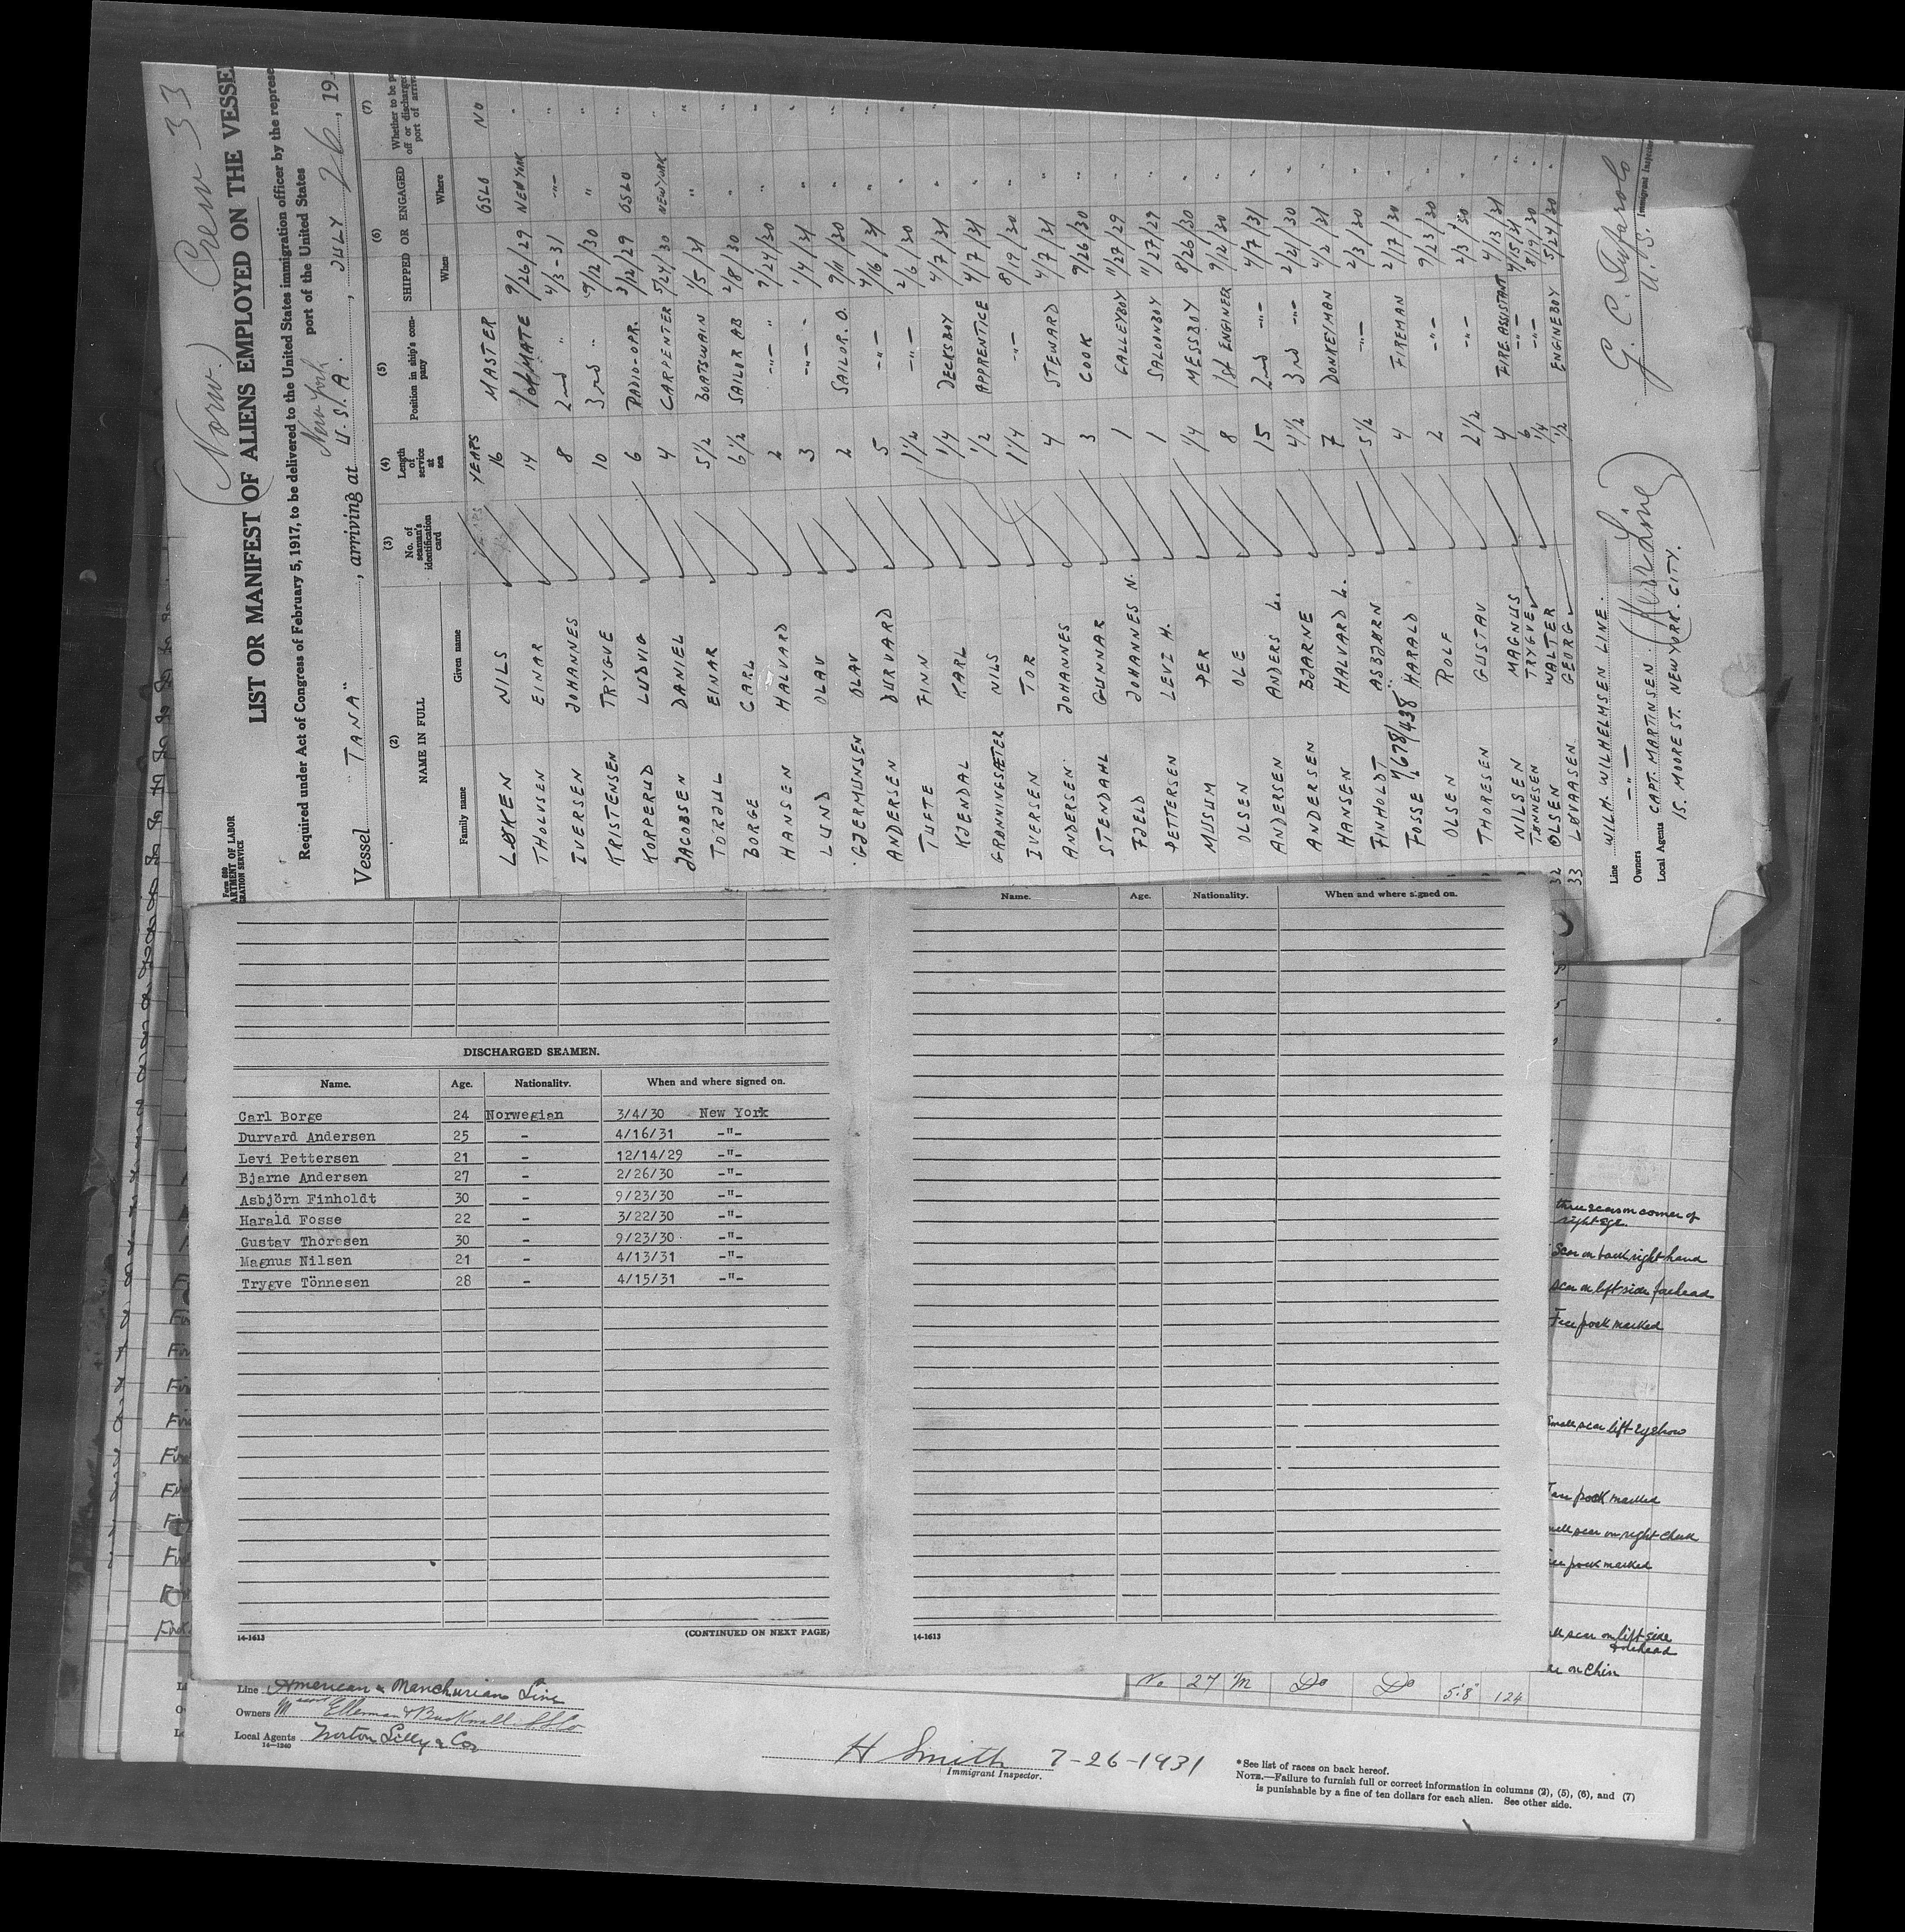 (Norw.) Crew 33
Form 689
LIST OR MANIFEST OF ALIENS EMPLOYED ON THE VESSE
Required under Act of Congress of February 5, 1917, to be delivered to the United States immigration officer by the represe
New York port of the United States
Vessel "TANA", arriving at U.S.A., JULY 26, 19
(2) (3) (4) (5) (6) (7)
NAME IN FULL No. of seaman's identification card Length of service at sea Position in ship's company SHIPPED OR ENGAGED Whether to be
Family name Given name When Where
YEARS
LØKEN NILS 16 MASTER OSLO NO
THOLVSEN EINAR 14 1st MATE 9/26/29 NEW YORK "
IVERSEN JOHANNES 8 2nd " 4/3-31 -"- "
KRISTENSEN TRYGVE 10 3rd " 9/12/30 " "
KORPERUD LUDVIG 6 RADIO-OPR. 3/12/29 OSLO "
JACOBSEN DANIEL 4 CARPENTER 5/24/30 NEW YORK "
TORJUL EINAR 5 1/2 BOATSWAIN 1/5/31 " "
BORGE CARL 6 1/2 SAILOR AB 2/8/30 " "
HANSEN HALVARD 2 -"- " 9/24/30 " "
LUND OLAV 3 -"- " 1/4/31 " "
GJERMUNSEN OLAV 2 SAILOR. O. 9/11/30 " "
ANDERSEN DURVARD 5 -"- 4/16/31 " "
TUFTE FINN 1 1/2 -"- 2/6/30 " "
KJENDAL KARL 1/4 DECKSBOY 4/7/31 " "
GRØNNINGSÆTER NILS 1/2 APPRENTICE 4/7/31 " "
IVERSEN TOR 1 1/4 -"- 8/19/30 " "
ANDERSEN JOHANNES 4 STEWARD 4/7/31 " "
STENDAHL GUNNAR 3 COOK 9/26/30 " "
FJELD JOHANNES N. 1 GALLEYBOY 11/27/29 " "
PETTERSEN LEVI H. 1 SALOONBOY 11/27/29 " "
MUSUM PER 1/4 MESSBOY 8/26/30 " "
OLSEN OLE 8 1st ENGINEER 9/12/30 " "
ANDERSEN ANDERS L. 15 2nd -"- 4/7/31 " "
ANDERSEN BJARNE 4 1/2 3rd -"- 2/21/30 " "
HANSEN HALVARD L. 7 DONKEYMAN 4/2/31 " "
FINHOLDT ASBJØRN 5 1/2 -"- 2/3/30 " "
FOSSE 7678/438 HARALD 4 FIREMAN 2/17/30 " "
OLSEN ROLF 2 -"- 9/23/30 " "
THORESEN GUSTAV 2 1/2 -"- 2/3/30 " "
NILSEN MAGNUS 4 FIRE.ASSISTANT 4/13/31 " "
TØNNESEN TRYGVE 6 -"- 4/15/31 " "
32 OLSEN WALTER 1/4 -"- 8/19/30 "
33 LØVAASEN GEORG 1/2 ENGINEBOY 5/24/30 "
Line WILH. WILHELMSEN LINE.
Owners -"-
Local Agents CAPT. MARTINSEN.
15. MOORE ST. NEW YORK. CITY.
U.S. Immigrant Inspector
DISCHARGED SEAMEN.
Name. Age. Nationality. When and where signed on.
Carl Borge 24 Norwegian 3/4/30 New York
Durvard Andersen 25 - 4/16/31 -"-
Levi Pettersen 21 - 12/14/29 -"-
Bjarne Andersen 27 - 2/26/30 -"-
Asbjörn Finholdt 30 - 9/23/30 -"-
Harald Fosse 22 - 3/22/30 -"-
Gustav Thoresen 30 - 9/23/30 -"-
Magnus Nilsen 21 - 4/13/31 -"-
Trygve Tönnesen 28 - 4/15/31 -"-
14-1613 (CONTINUED ON NEXT PAGE)
Name. Age. Nationality. When and where signed on.
14-1613
right eye.
Scar on back right hand
scar on left side forehead
Face pock marked
Small scar left eyebrow
Face pock marked
scar on right cheek
pock marked
scar on left side forehead
on Chin
No 27 M Do Do 5'8" 124
Line American & Manchurian Line
Owners Messrs Ellerman & Bucknall S.S.Co
Local Agents Norton Lilly & Co
14-1240
H Smith 7-26-1931
Immigrant Inspector.
*See list of races on back hereof.
NOTE.—Failure to furnish full or correct information in columns (2), (5), (6), and (7)
is punishable by a fine of ten dollars for each alien. See other side.